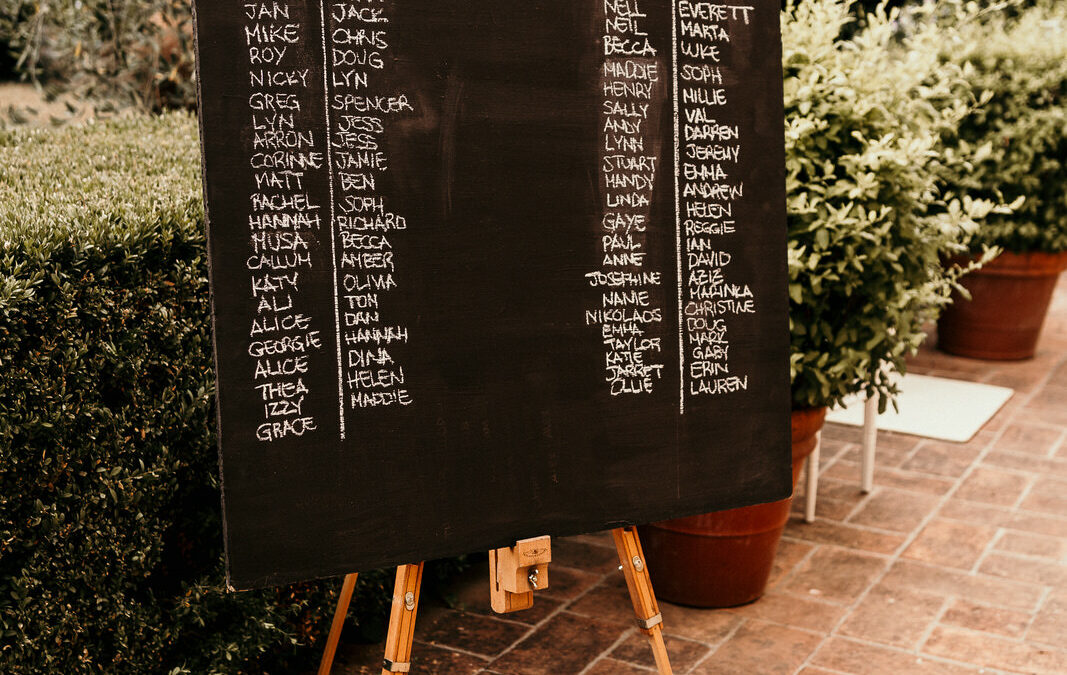 JAN
MIKE
ROY
NICKY
GREG
LYN
ARRON
CORINNE
MATT
RACHEL
HANNAH
MUSA
CALLUM
KATY
ALI
ALICE
GEORGIE
ALICE
THEA
IZZY
GRACE
JACK
CHRIS
DOUG
LYN
SPENCER
JESS
JESS
JAMIE
BEN
SOPH
RICHARD
BECCA
AMBER
OLIVIA
TOM
DAN
HANNAH
DINA
HELEN
MADDIE
NELL
NEIL
BECCA
MADDIE
HENRY
SALLY
ANDY
LYNN
STUART
MANDY
LINDA
GAYE
PAUL
ANNE
JOSEPHINE
NANIE
NIKOLAOS
EMMA
TAYLOR
KATIE
JARRET
OLLIE
EVERETT
MARTA
LUKE
SOPH
NILLIE
VAL
DARREN
JEREMY
EMMA
ANDREW
HELEN
REGGIE
IAN
DAVID
AZIZ
MARINKA
CHRISTINE
DOUG
MARK
GABY
ERIN
LAUREN